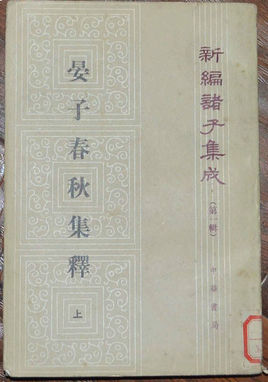 新編諸子集成
(第一輯)
中華書局
晏子春秋集釋
上